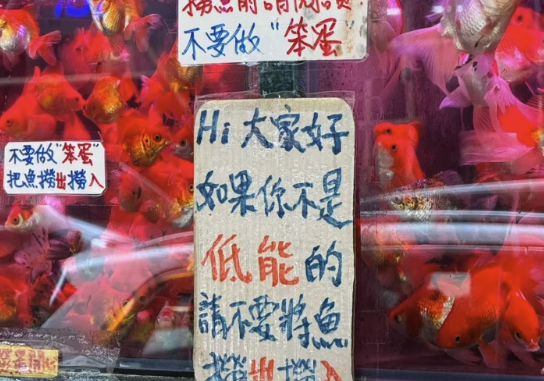 撈魚的請
不要做"笨蛋"
不要做"笨蛋"
把魚撈出撈入
Hi 大家好
如果你不是
低能的
請不要將魚
撈出撈入